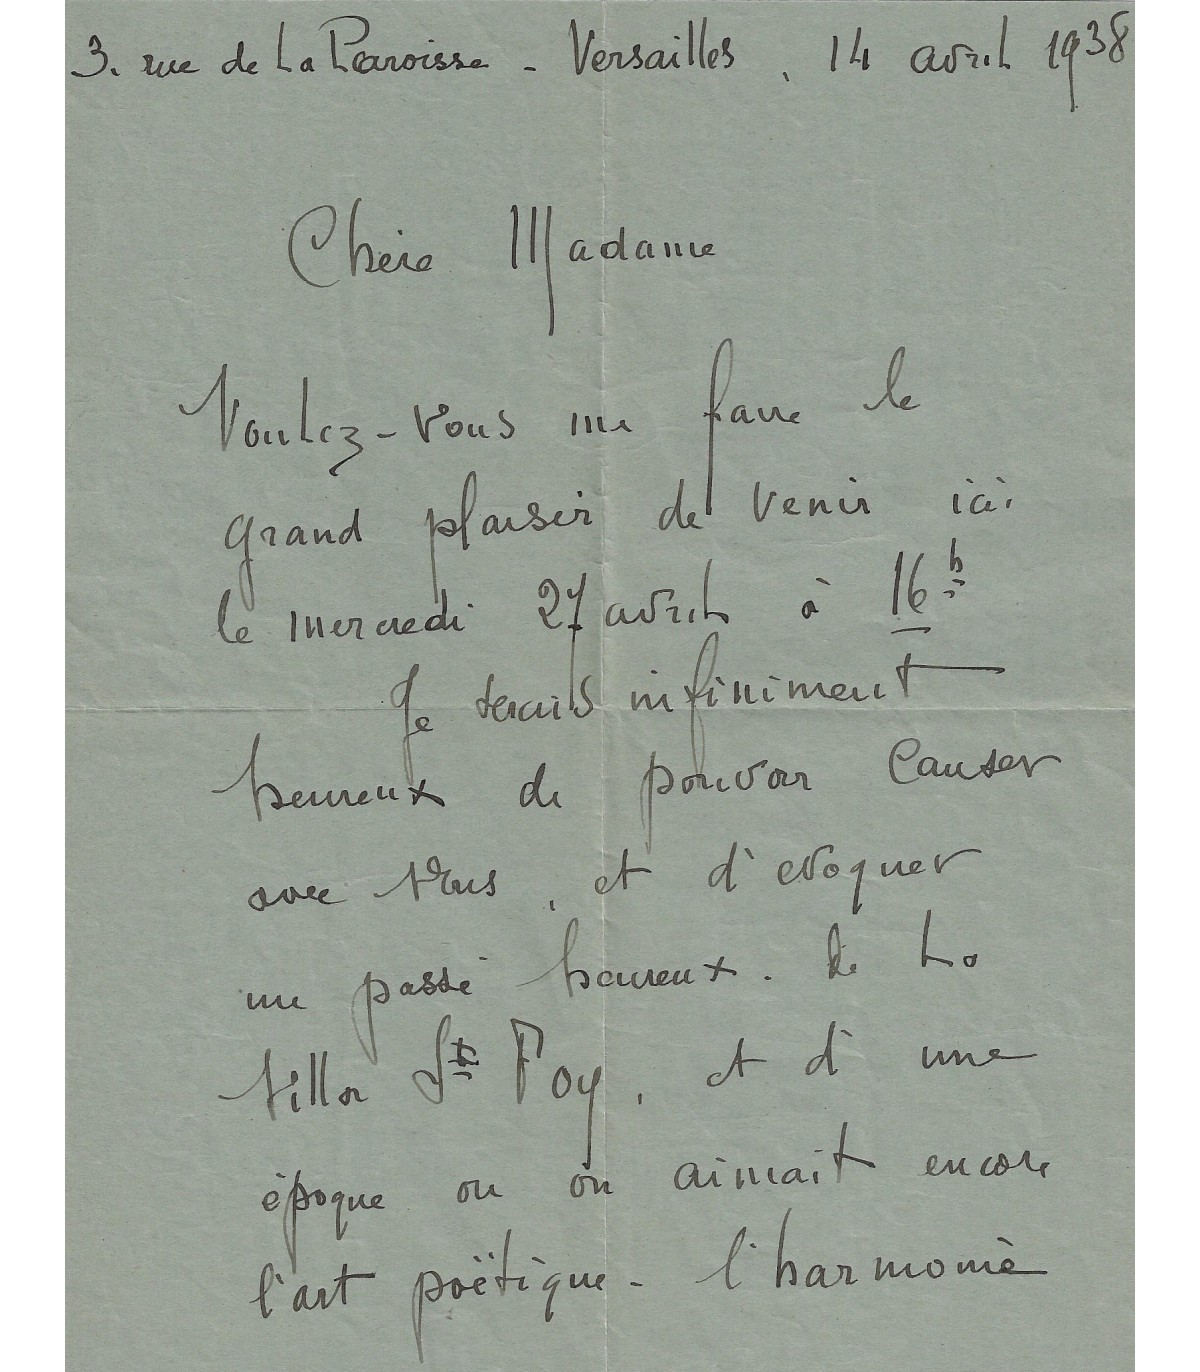 3. rue de La Paroisse - Versailles, 14 avril 1938
Chère Madame
Voulez-vous me faire le
grand plaisir de venir ici
le mercredi 27 avril à 16h
Je serais infiniment
heureux de pouvoir causer
avec vous, et d'evoquer
un passé heureux. de La
villa Ste Foy, et d'une
époque ou on aimait encore
l'art poëtique - l'harmonie